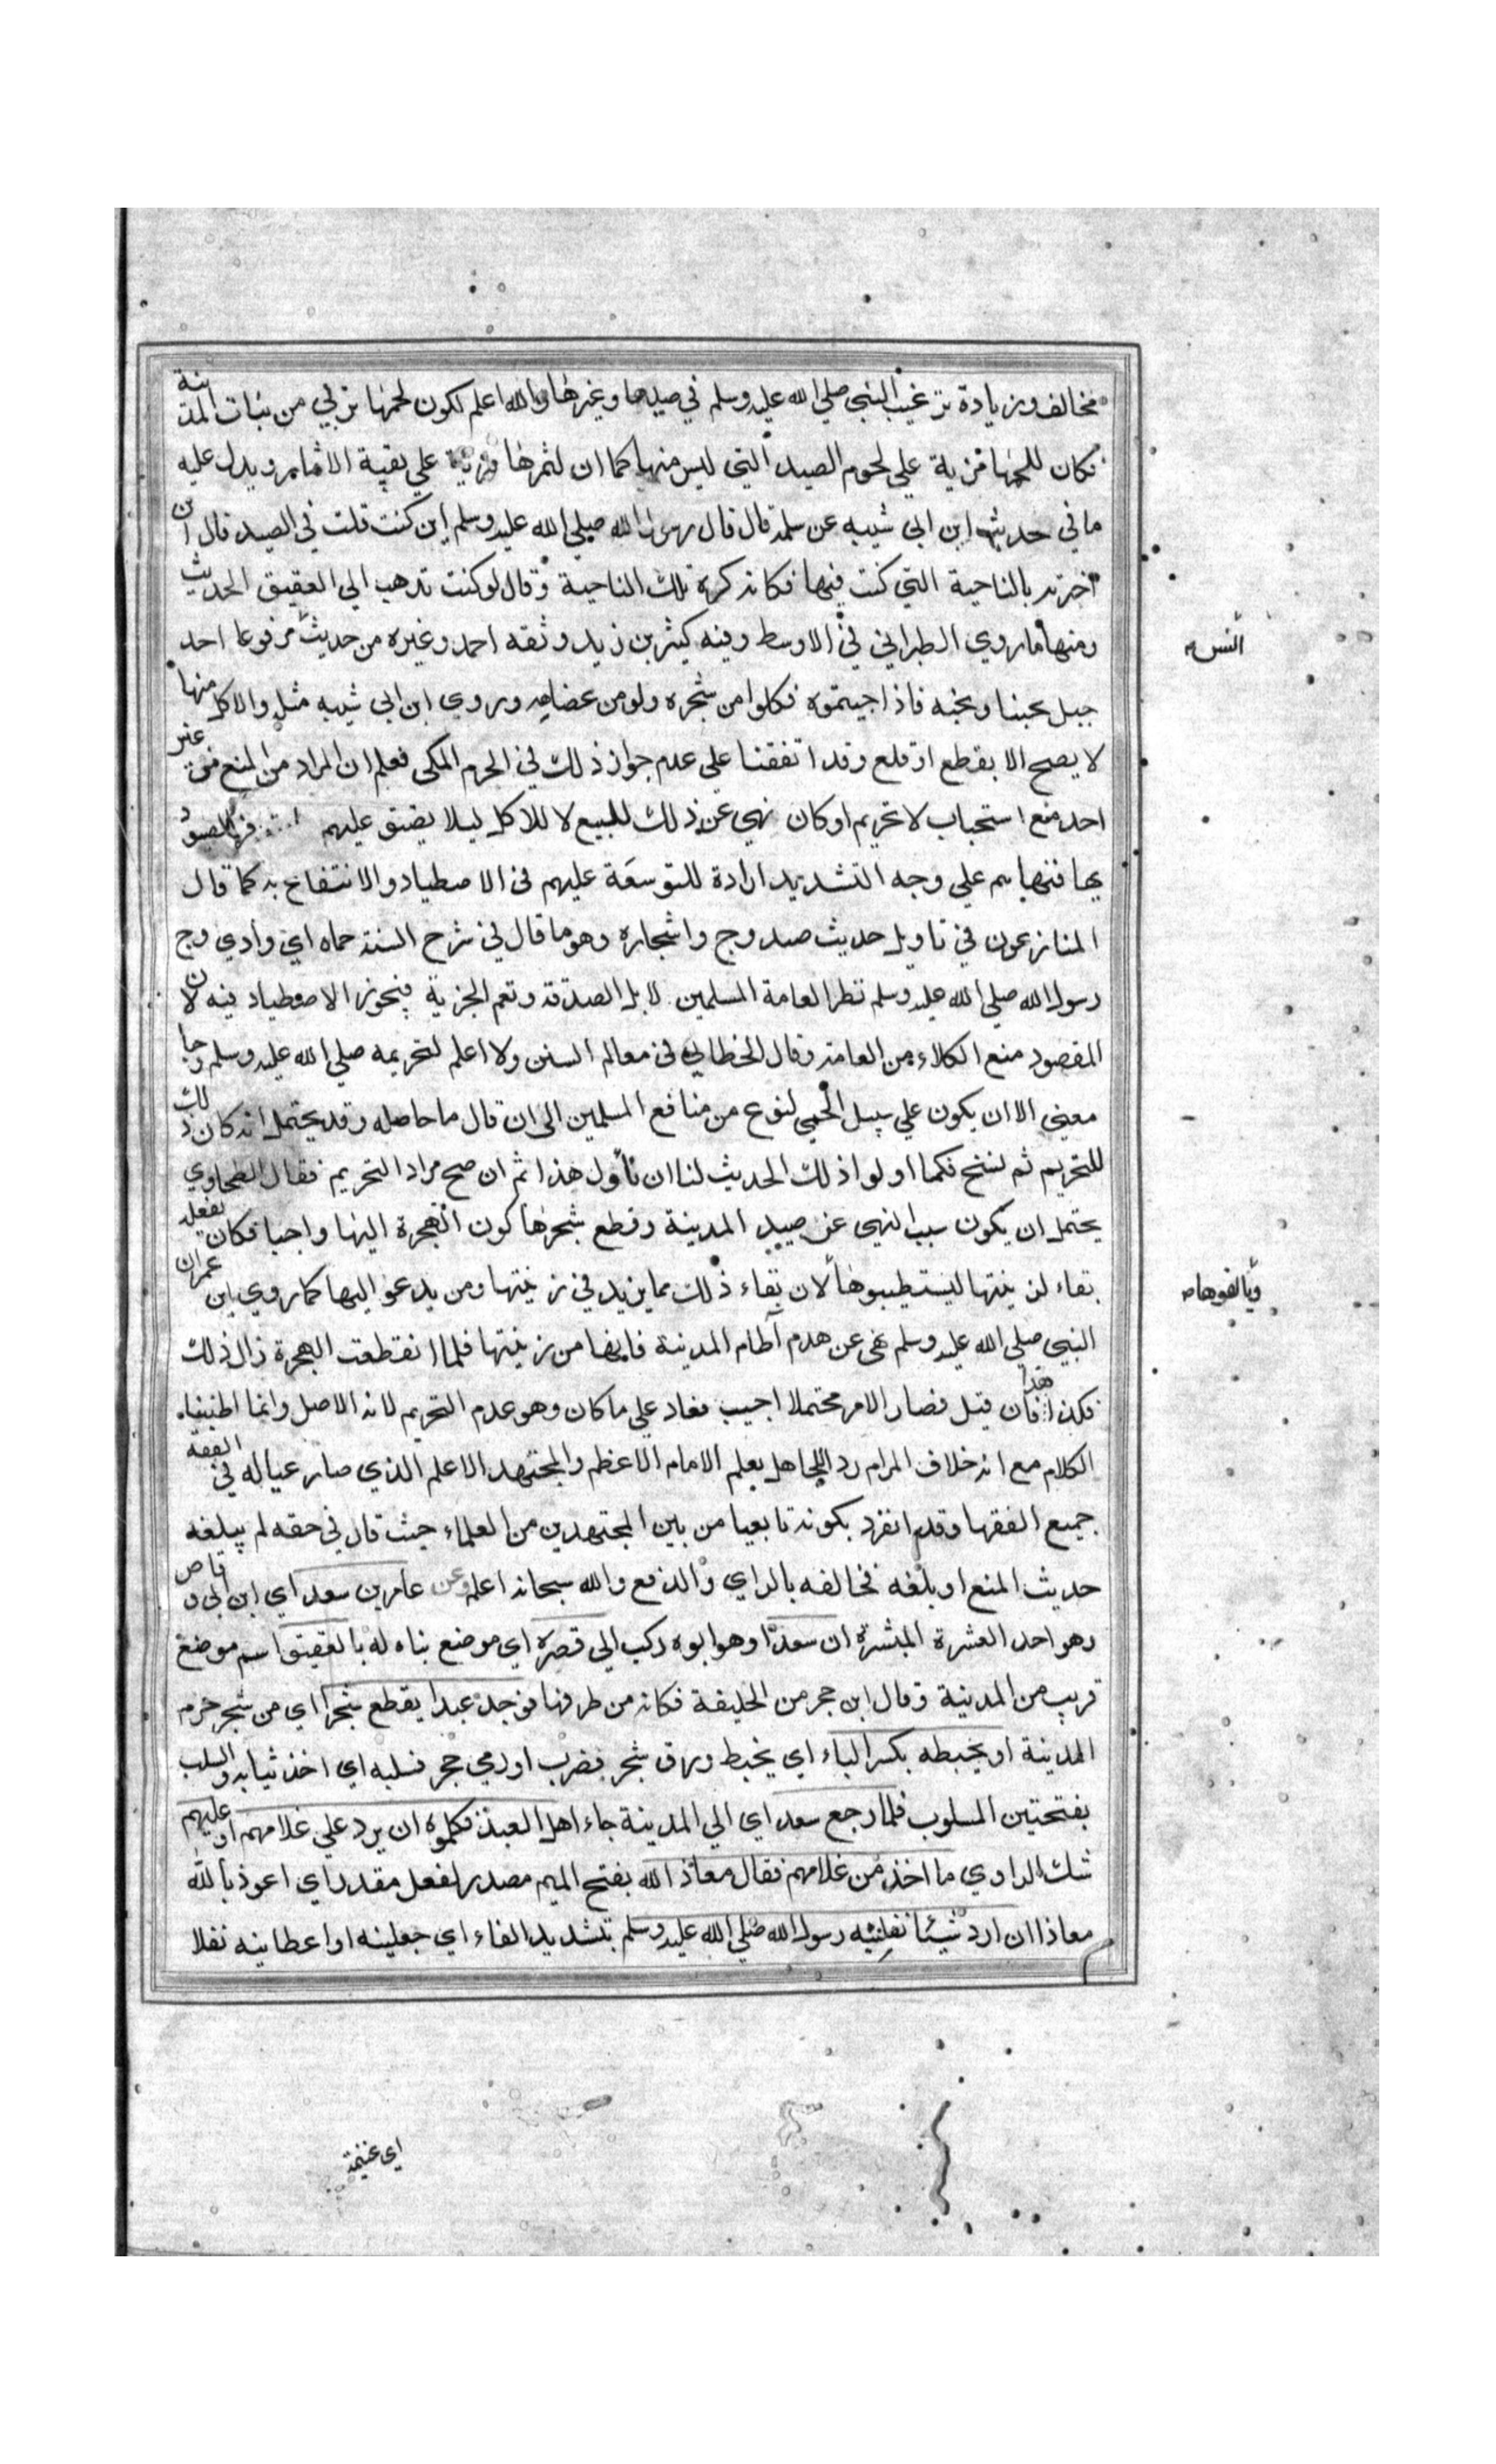 مخالف وزيادة ترغيب النبي صلي الله عليه وسلم في صيدها وغيرها والله اعلم لكون لحمها تربي من نبات المدينة
فكان للحمها مزية علي لحوم الصيد التي ليس منها كما ان لثمرها مزية علي بقية الاثمار ويدل عليه
ما في حديث ابن ابي شيبه عن سلمة قال قال رسول الله صلي الله عليه وسلم اين كنت قلت في الصيد قال اين
اخبرته بالناحية التي كنت فيها فكانه كره تلك الناحية وقال لو كنت تذهب الي العقيق الحديث
ومنها ما روي الطبراني في الاوسط وفيه كثير بن زيد وثقه احمد وغيره من حديث مرفوعا احد
انس
جبل يحبنا ونحبه فاذا جيتموه فكلوا من شجره ولو من عضاهه وروي ابن ابي شيبه مثله والاكل منها
لا يصح الا بقطع او قلع وقد اتفقنا علي عدم جواز ذلك في الحرم المكي فعلم ان المراد من المنع في غير
احد منع استحباب لا تحريم او كان نهي عن ذلك للبيع لا للاكل ليلا يضيق عليهم
بها فنهاهم علي وجه التشديد ارادة للتوسعة عليهم في الاصطياد والانتفاع به كما قال
المنازعون في تاويل حديث صيد وج واشجاره وهو ما قال في شرح السنة حماه اي وادي وج
رسول الله صلي الله عليه وسلم نظرا لعامة المسلمين لابل الصدقة ونعم الجزية فيجوز الاصطياد فيه لان
المقصود منع الكلاء من العامة وقال الخطابي في معالم السنن ولا اعلم لتحريمه صلي الله عليه وسلم وجا
معني الا ان يكون علي سبيل الحمي لنوع من منافع المسلمين الي ان قال ما حاصله وقد يحتمل انه كان ذلك
للتحريم ثم نسخ فكما اولوا ذلك الحديث لنا ان نأول هذا ثم ان صح مراد التحريم فقال الطحاوي
يحتمل ان يكون سبب النهي عن صيد المدينة وقطع شجرها كون الهجرة اليها واجبا فكان بفعله
بقاء لزينتها ليستطيبوها لان بقاء ذلك مما يزيد في زينتها ومن يدعو اليها كما روي ابن عمران
ويالفوها
النبي صلي الله عليه وسلم نهي عن هدم آطام المدينة فانها من زينتها فلما انقطعت الهجرة زال ذلك
فكذا هذا فان قيل فصار الامر محتملا اجيب فعاد علي ما كان وهو عدم التحريم لانه الاصل وانما اطنبنا
الكلام مع انه خلاف المرام رد اللجاهل بعلم الامام الاعظم والمجتهد الاعلم الذي صار عياله في الفقه
جميع الفقها وقد انفرد بكونه تابعيا من بين المجتهدين من العلماء حيث قال في حقه لم يبلغه
حديث المنع او بلغه فخالفه بالراي والدفع والله سبحانه اعلم وعن عامر بن سعد اي ابن ابي وقاص
وهو احد العشرة المبشرة ان سعدا وهو ابوه ركب الي قصره اي موضع بناه له بالعقيق اسم موضع
قريب من المدينة وقال ابن حجر من الحليفة فكانه من طرفها فوجد عبدا يقطع شجرا اي من شجر حرم
المدينة او يخبطه بكسر الباء اي يخبط ورق شجر بضرب او رمي حجر فسلبه اي اخذ ثيابه والسلب
بفتحتين المسلوب فلما رجع سعد اي الي المدينة جاء اهل العبد فكلموه ان يرد علي غلامهم او عليهم
شك الراوي ما اخذ من غلامهم فقال معاذ الله بفتح الميم مصدر لفعل مقدر اي اعوذ بالله
معاذا ان ارد شيئا نفلنيه رسول الله صلي الله عليه وسلم بتشديد الفاء اي جعلينه او اعطانيه نفلا
اي غنيمة